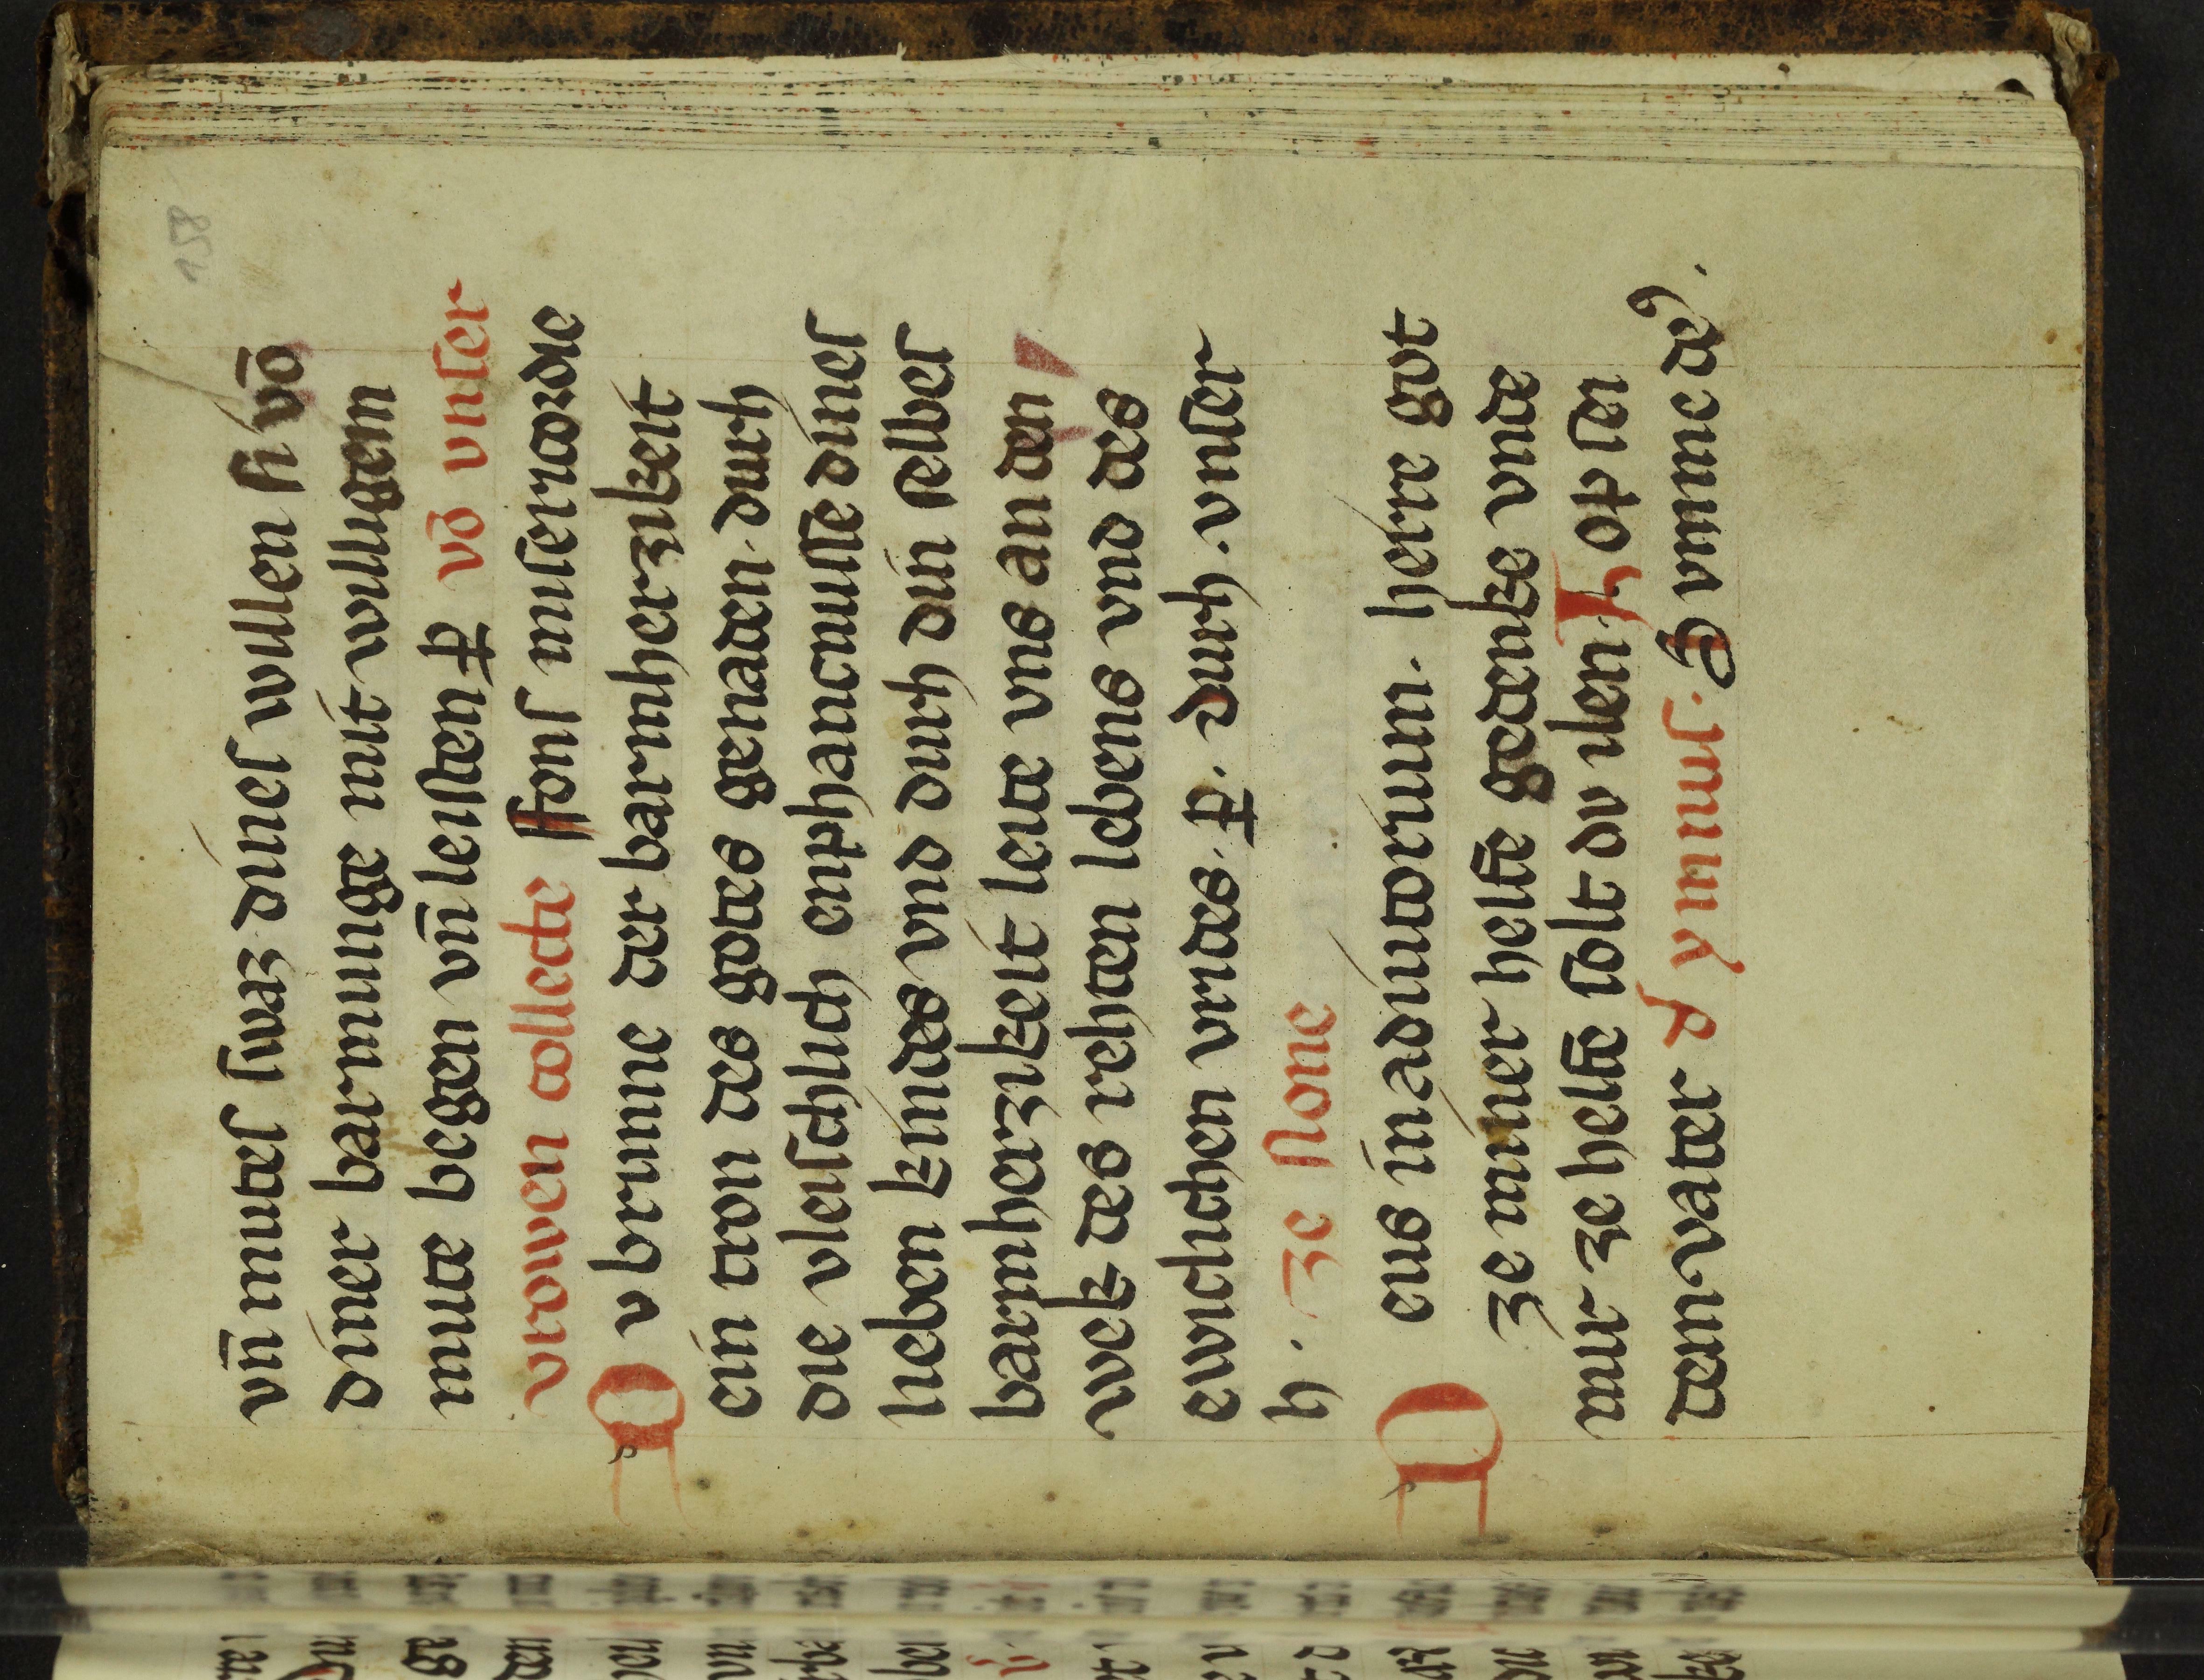 158
vn̄ mutes swaz dines willen si vō
diner barmunge mit willigem
mute begen vn̄ leisten P vō vnser
vrowen collecte ffons misericordie
Dv brunne der barmherzikeit
ein tron des gotes genaden. durch
die vleischlich enphancnusse dines
lieben kindes vnd durch din selbes
barmherzikeit leite vns an den
wek des rehten lebens vnd des
ewichchen vrides. P. durch. vnser
h. ze none
Deus in adiutorium. herre got
ze miner helfe gedenke vnde
mir ze helfe solt dv ilen. Lop sei
dem vater d ymnus. O vnine de9.